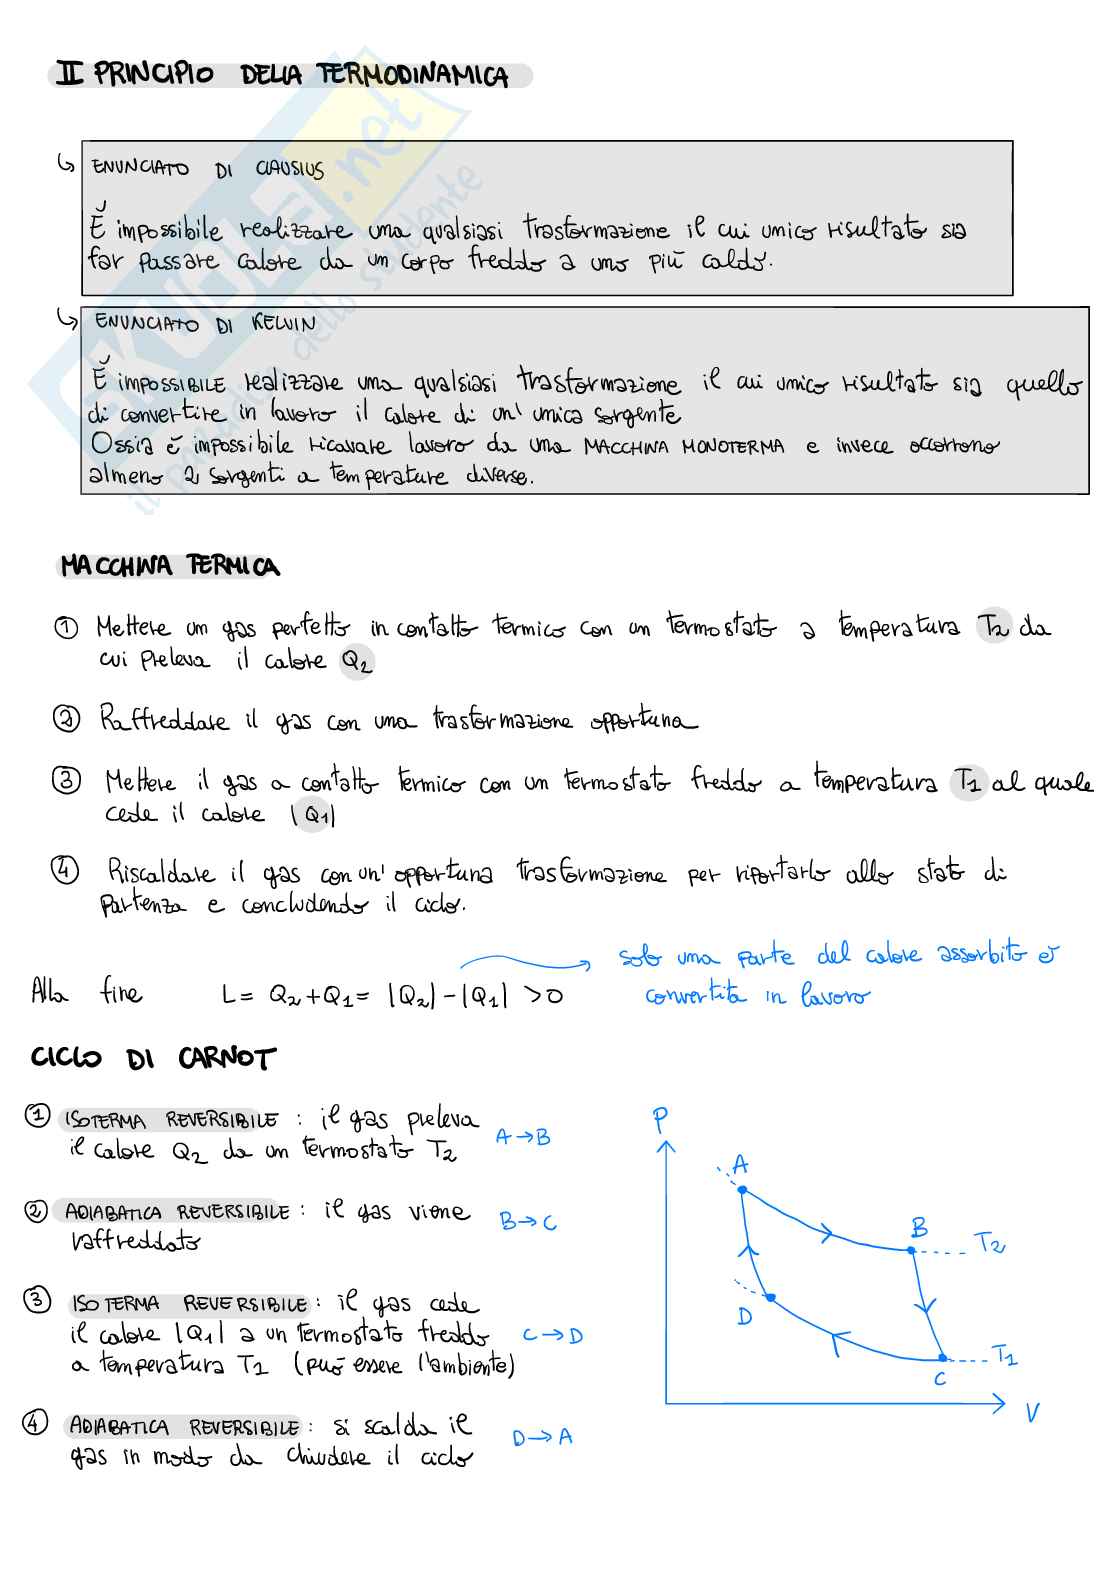 II PRINCIPIO DELLA TERMODINAMICA
↳ ENUNCIATO DI CLAUSIUS
È impossibile realizzare una qualsiasi trasformazione il cui unico risultato sia
far passare calore da un corpo freddo a uno più caldo.
↳ ENUNCIATO DI KELVIN
È IMPOSSIBILE realizzare una qualsiasi trasformazione il cui unico risultato sia quello
di convertire in lavoro il calore di un' unica sorgente
Ossia è impossibile ricavare lavoro da una MACCHINA MONOTERMA e invece occorrono
almeno 2 sorgenti a temperature diverse.
SKUOLA.net
il paradiso dello studente
MACCHINA TERMICA
① Mettere un gas perfetto in contatto termico con un termostato a temperatura T2 da
cui preleva il calore Q2
② Raffreddare il gas con una trasformazione opportuna
③ Mettere il gas a contatto termico con un termostato freddo a temperatura T1 al quale
cede il calore |Q1|
④ Riscaldare il gas con un' opportuna trasformazione per riportarlo allo stato di
partenza e concludendo il ciclo.
Alla fine L = Q2+Q1 = |Q2|-|Q1| >0
solo una parte del calore assorbito è
convertita in lavoro
CICLO DI CARNOT
① ISOTERMA REVERSIBILE : il gas preleva
il calore Q2 da un termostato T2
A→B
② ADIABATICA REVERSIBILE : il gas viene
raffreddato
B→C
③ ISOTERMA REVERSIBILE : il gas cede
il calore |Q1| a un termostato freddo
a temperatura T1 (può essere l'ambiente)
C→D
④ ADIABATICA REVERSIBILE : si scalda il
gas in modo da chiudere il ciclo
D→A
P
A
B
T2
D
T1
C
V